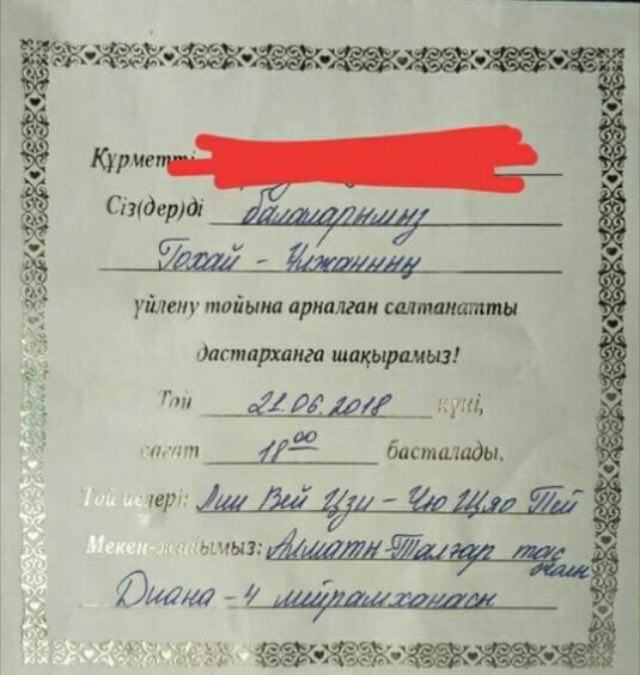 Құрметті
Сіз(дер)ді балаларымыз
Тохай - Ұлжанның
үйлену тойына арналған салтанатты
дастарханға шақырамыз!
Той 21.06.2018 күні,
сағат 18⁰⁰ басталады.
Той иелері: Лии Вей Цзи - Чю Щяо Пей
Мекен-жайымыз: Алматы-Талғар тас жолы
Диана - 4 мейрамханасы